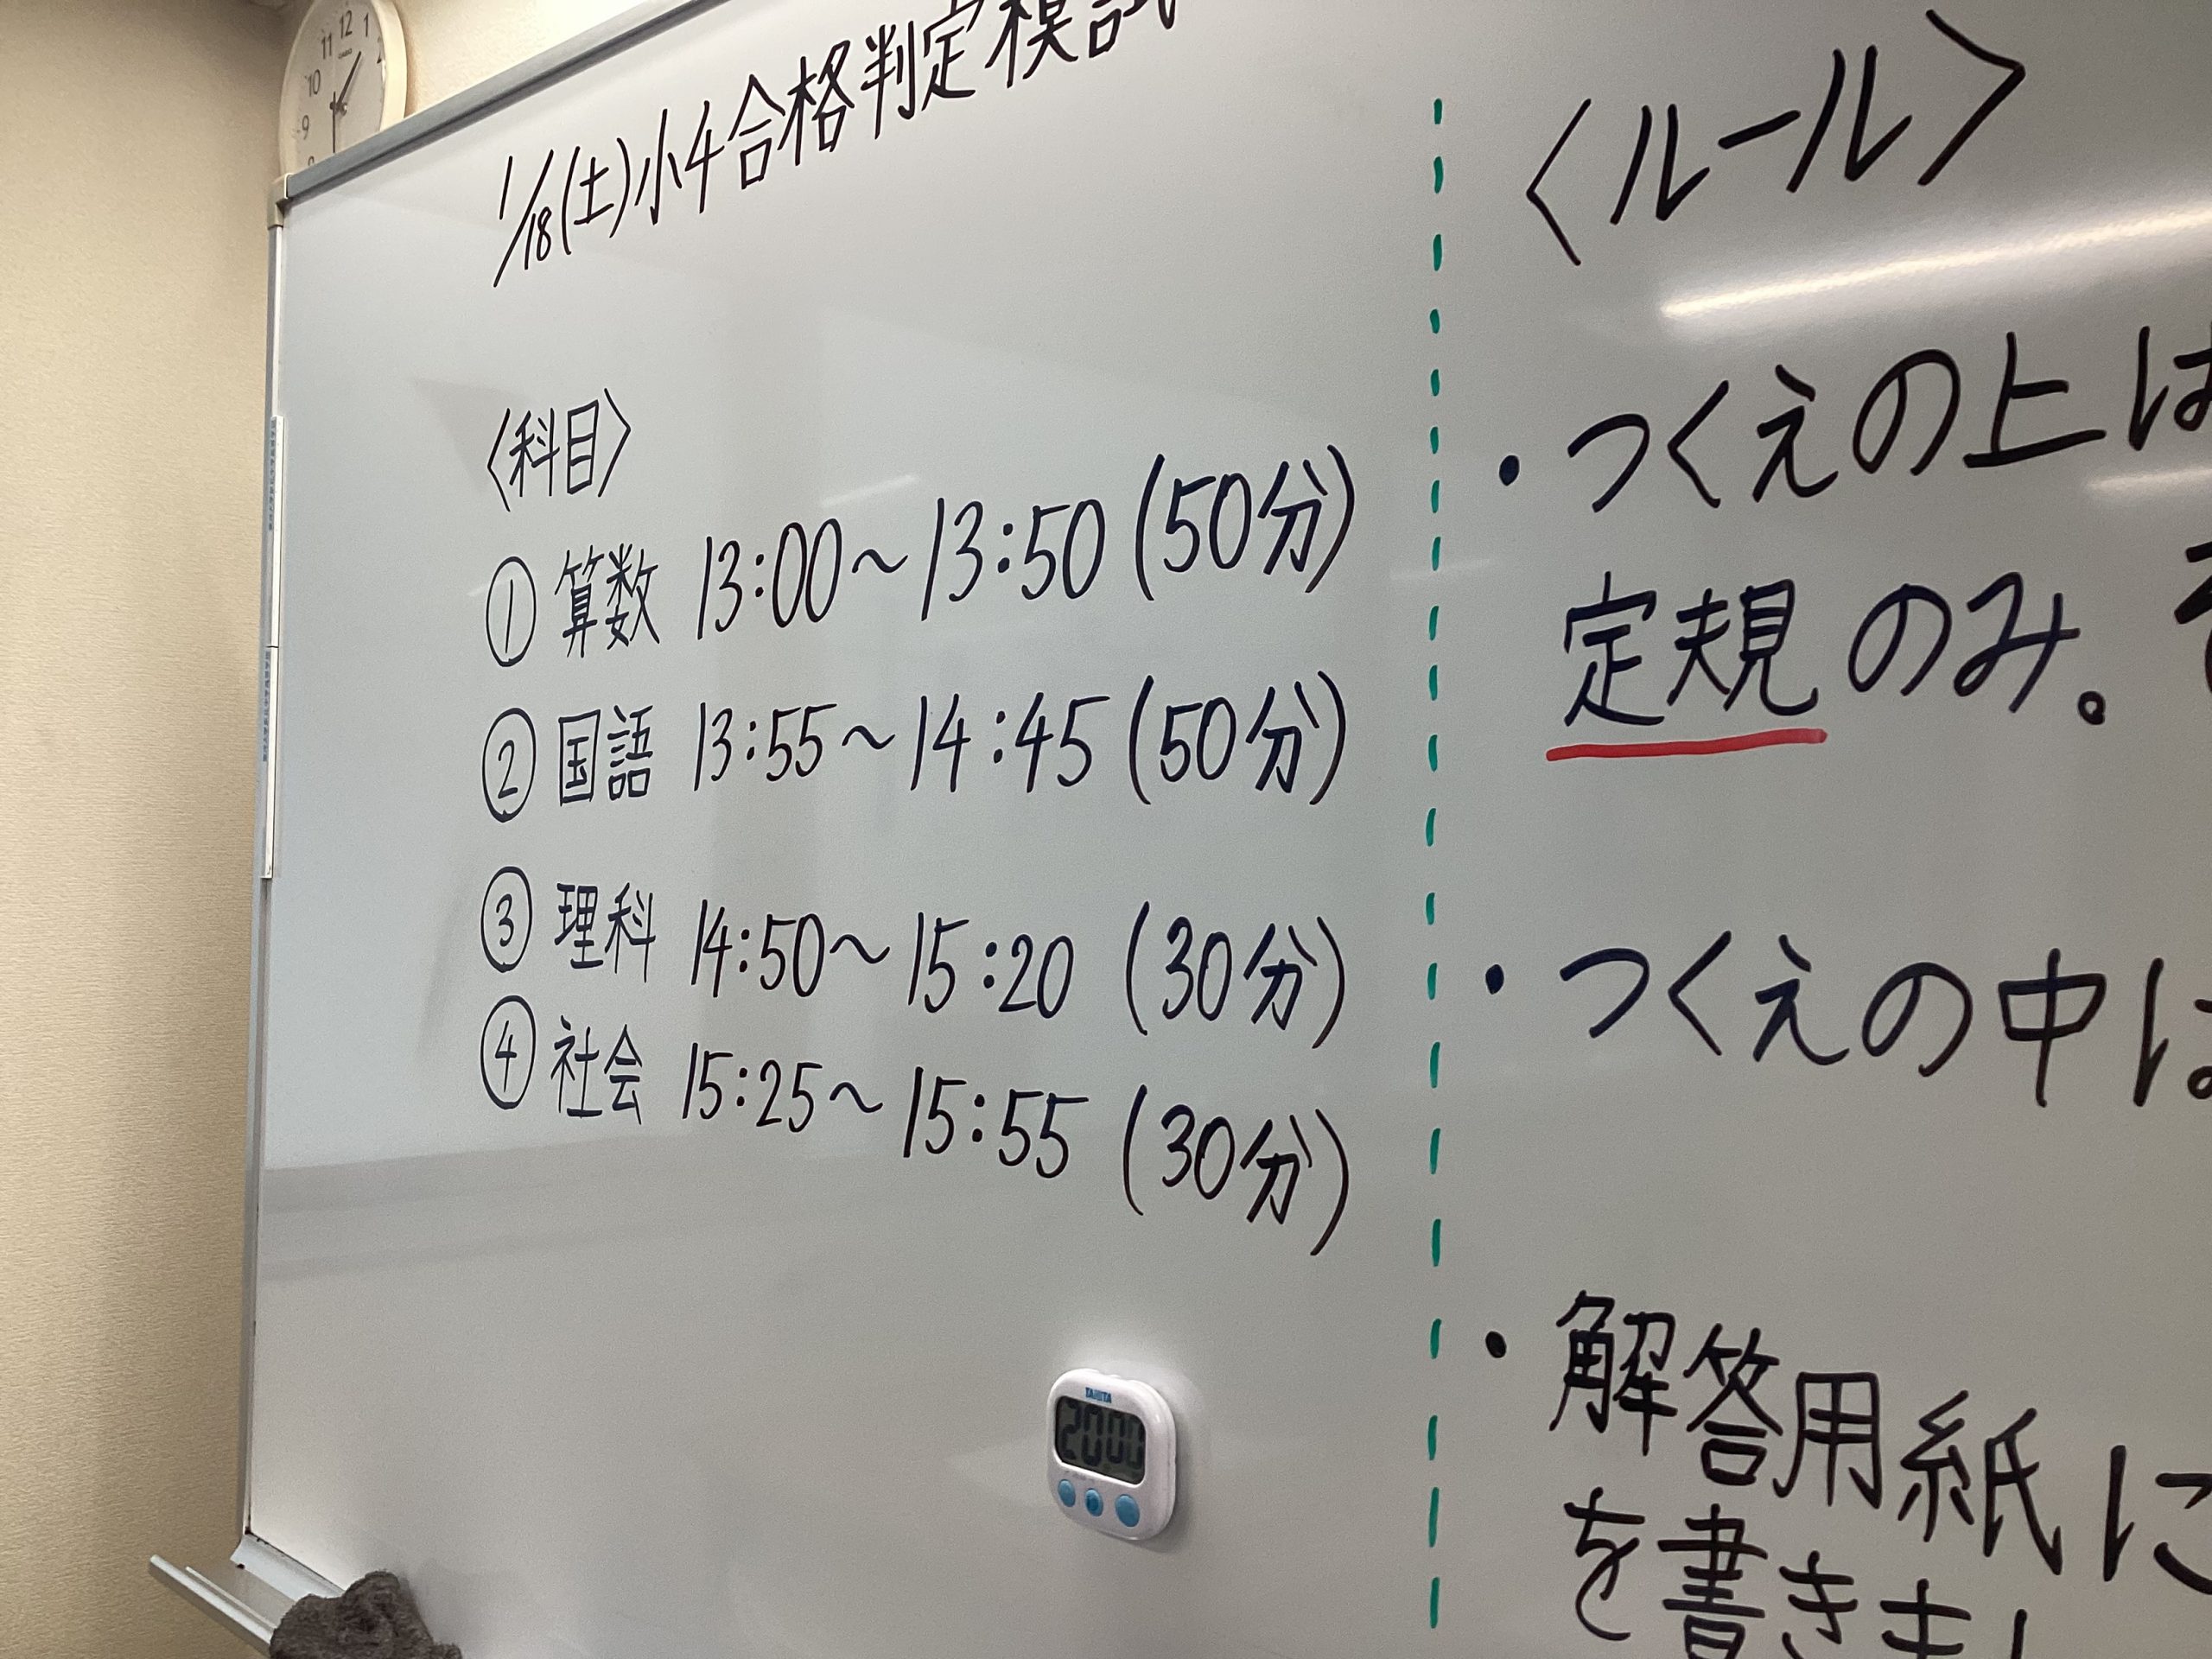 1/18(土)小4合格判定模試
〈科目〉
① 算数 13:00〜13:50(50分)
② 国語 13:55〜14:45(50分)
③ 理科 14:50〜15:20 (30分)
④ 社会 15:25〜15:55 (30分)
〈ルール〉
・つくえの上は
定規のみ。
・つくえの中は
・解答用紙に
を書きまし
12 1
11
10
9
TANITA
20 00